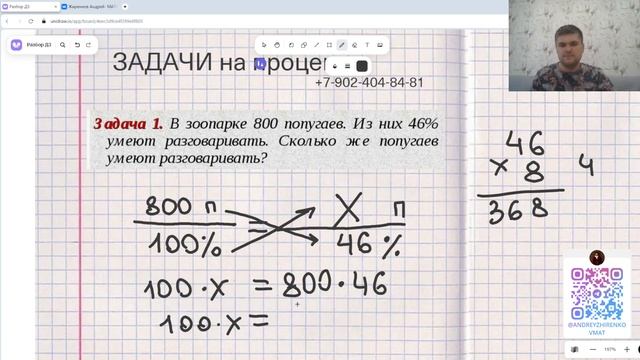 Разбор ДЗ
Жиренков Андрей
Разбор ДЗ
ЗАДАЧИ на проце
+7-902-404-84-81
Задача 1. В зоопарке 800 попугаев. Из них 46%
умеют разговаривать. Сколько же попугаев
умеют разговаривать?
800 п = X п
100% 46 %
100 · x = 800 · 46
100 · x =
46
x 8 4
368
@ANDREYZHIRENKO
VMAT
197%